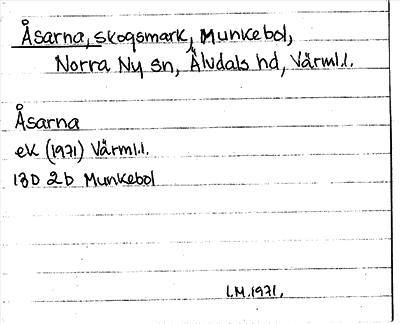 Åsarna, skogsmark, Munkebol,
Norra Ny sn, Älvdals hd, Värml.l.
Åsarna
ek (1971) Värml.l.
13D 2b Munkebol
I.M.1971.